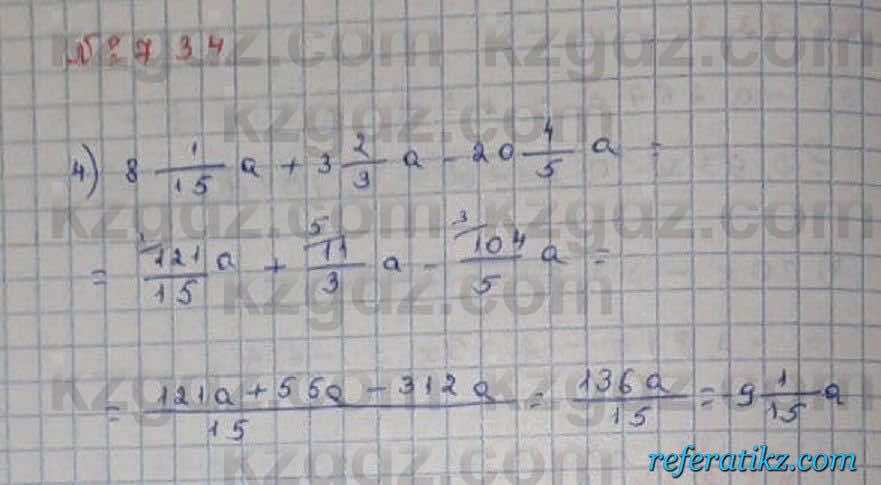 № 734
4) 8 1/15 a + 3 2/3 a - 20 4/5 a =
= ¹⁄ 121/15 a + ⁵⁄ 11/3 a - ³⁄ 104/5 a =
= 121a + 55a - 312a / 15 = 136a/15 = 9 1/15 a
kzgdz.com
referatikz.com